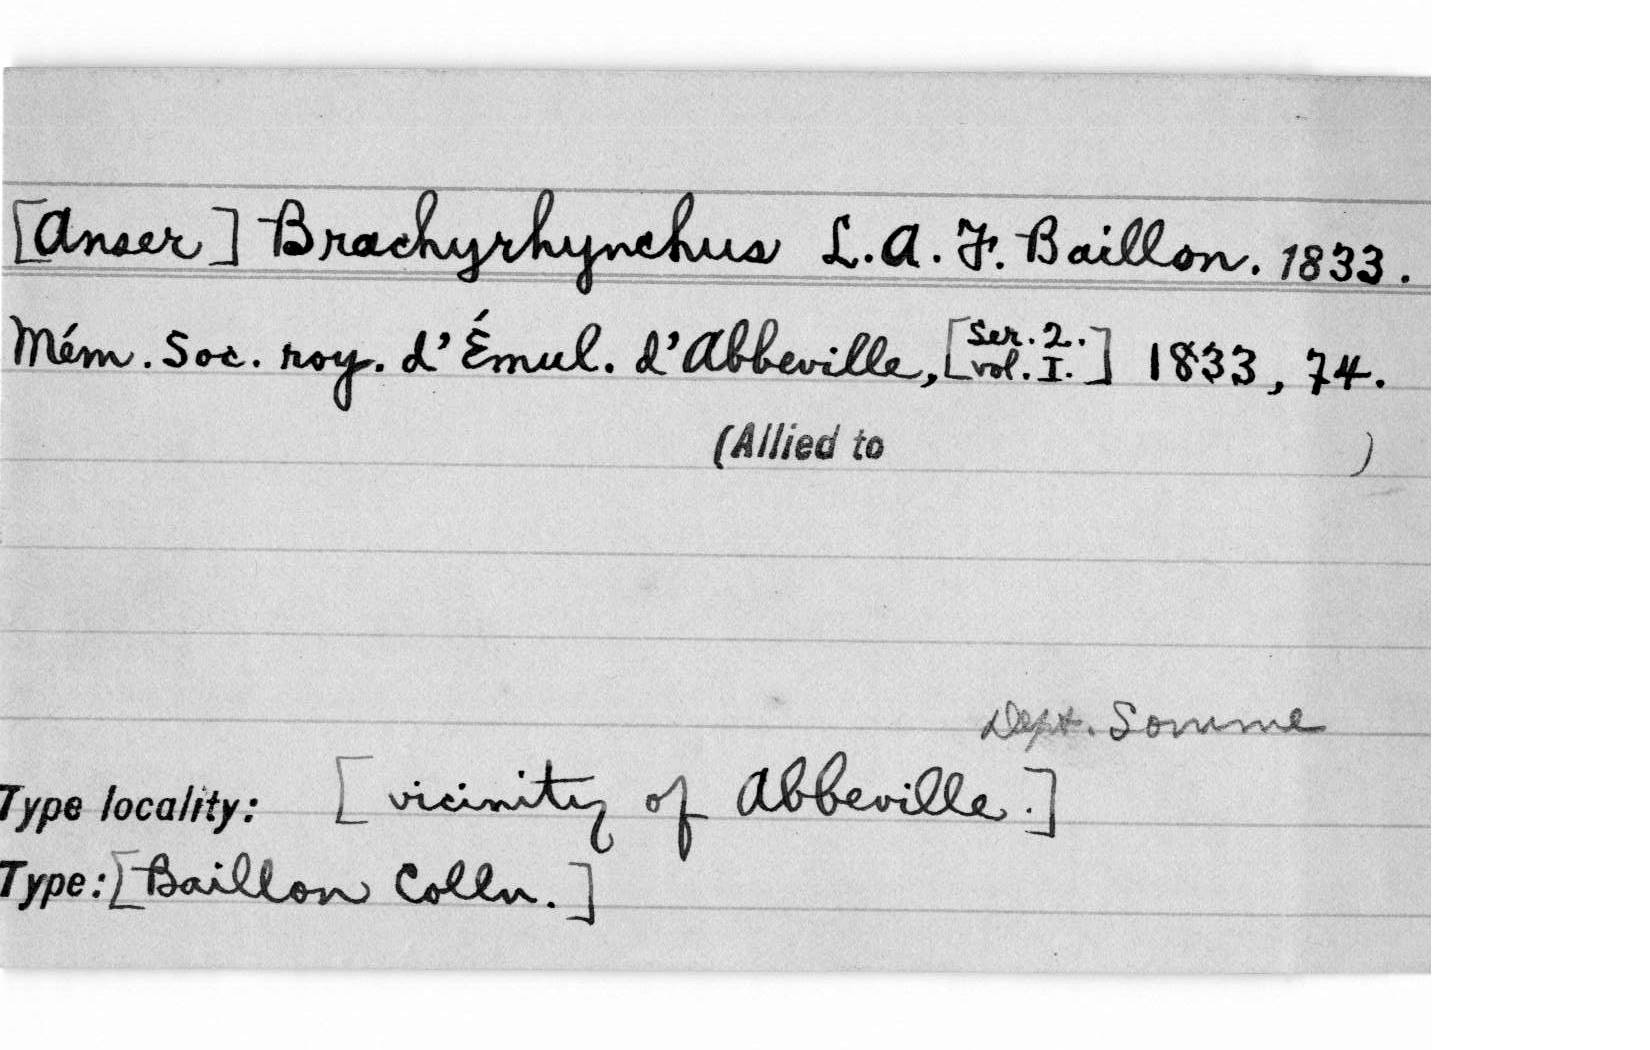 [Anser] Brachyrhynchus L.A.F. Baillon. 1833.
Mém. Soc. roy. d'Émul. d'Abbeville, [Ser. 2. vol. I.] 1833, 74.
(Allied to )
Dept. Somme
Type locality: [vicinity of Abbeville.]
Type: [Baillon Colln.]